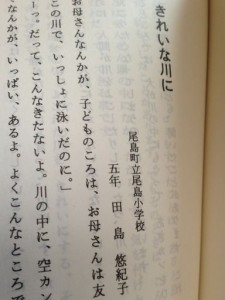 きれいな川に
尾島町立尾島小学校
五年 田島 悠紀子
お母さんなんかが、子どものころは、お母さんは友
この川で、いっしょに泳いだのに。」
ーっ。だって、こんなきたないよ。川の中に、空カン
なんかが、いっぱい、あるよ。よくこんなところで